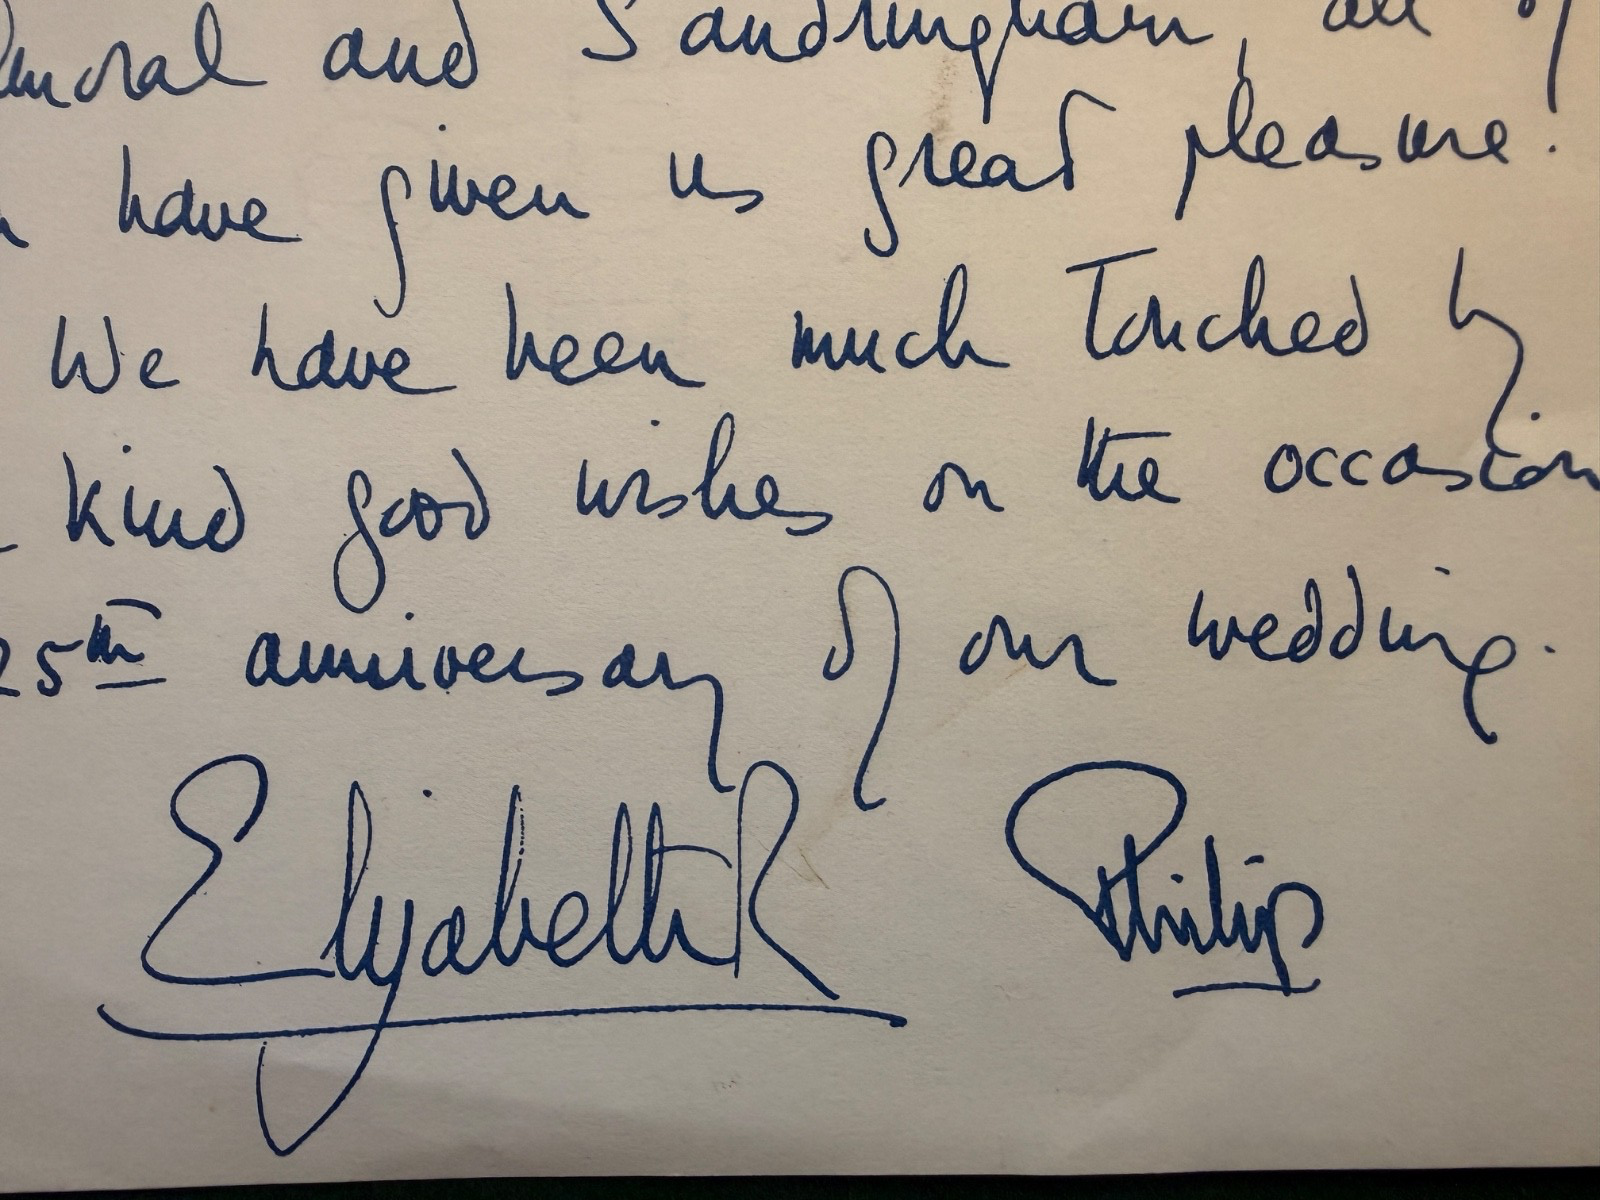 and Sandringham, all of
have given us great pleasure.
We have been much touched by
kind good wishes on the occasion
25th anniversary of our wedding.
Elizabeth R Philip